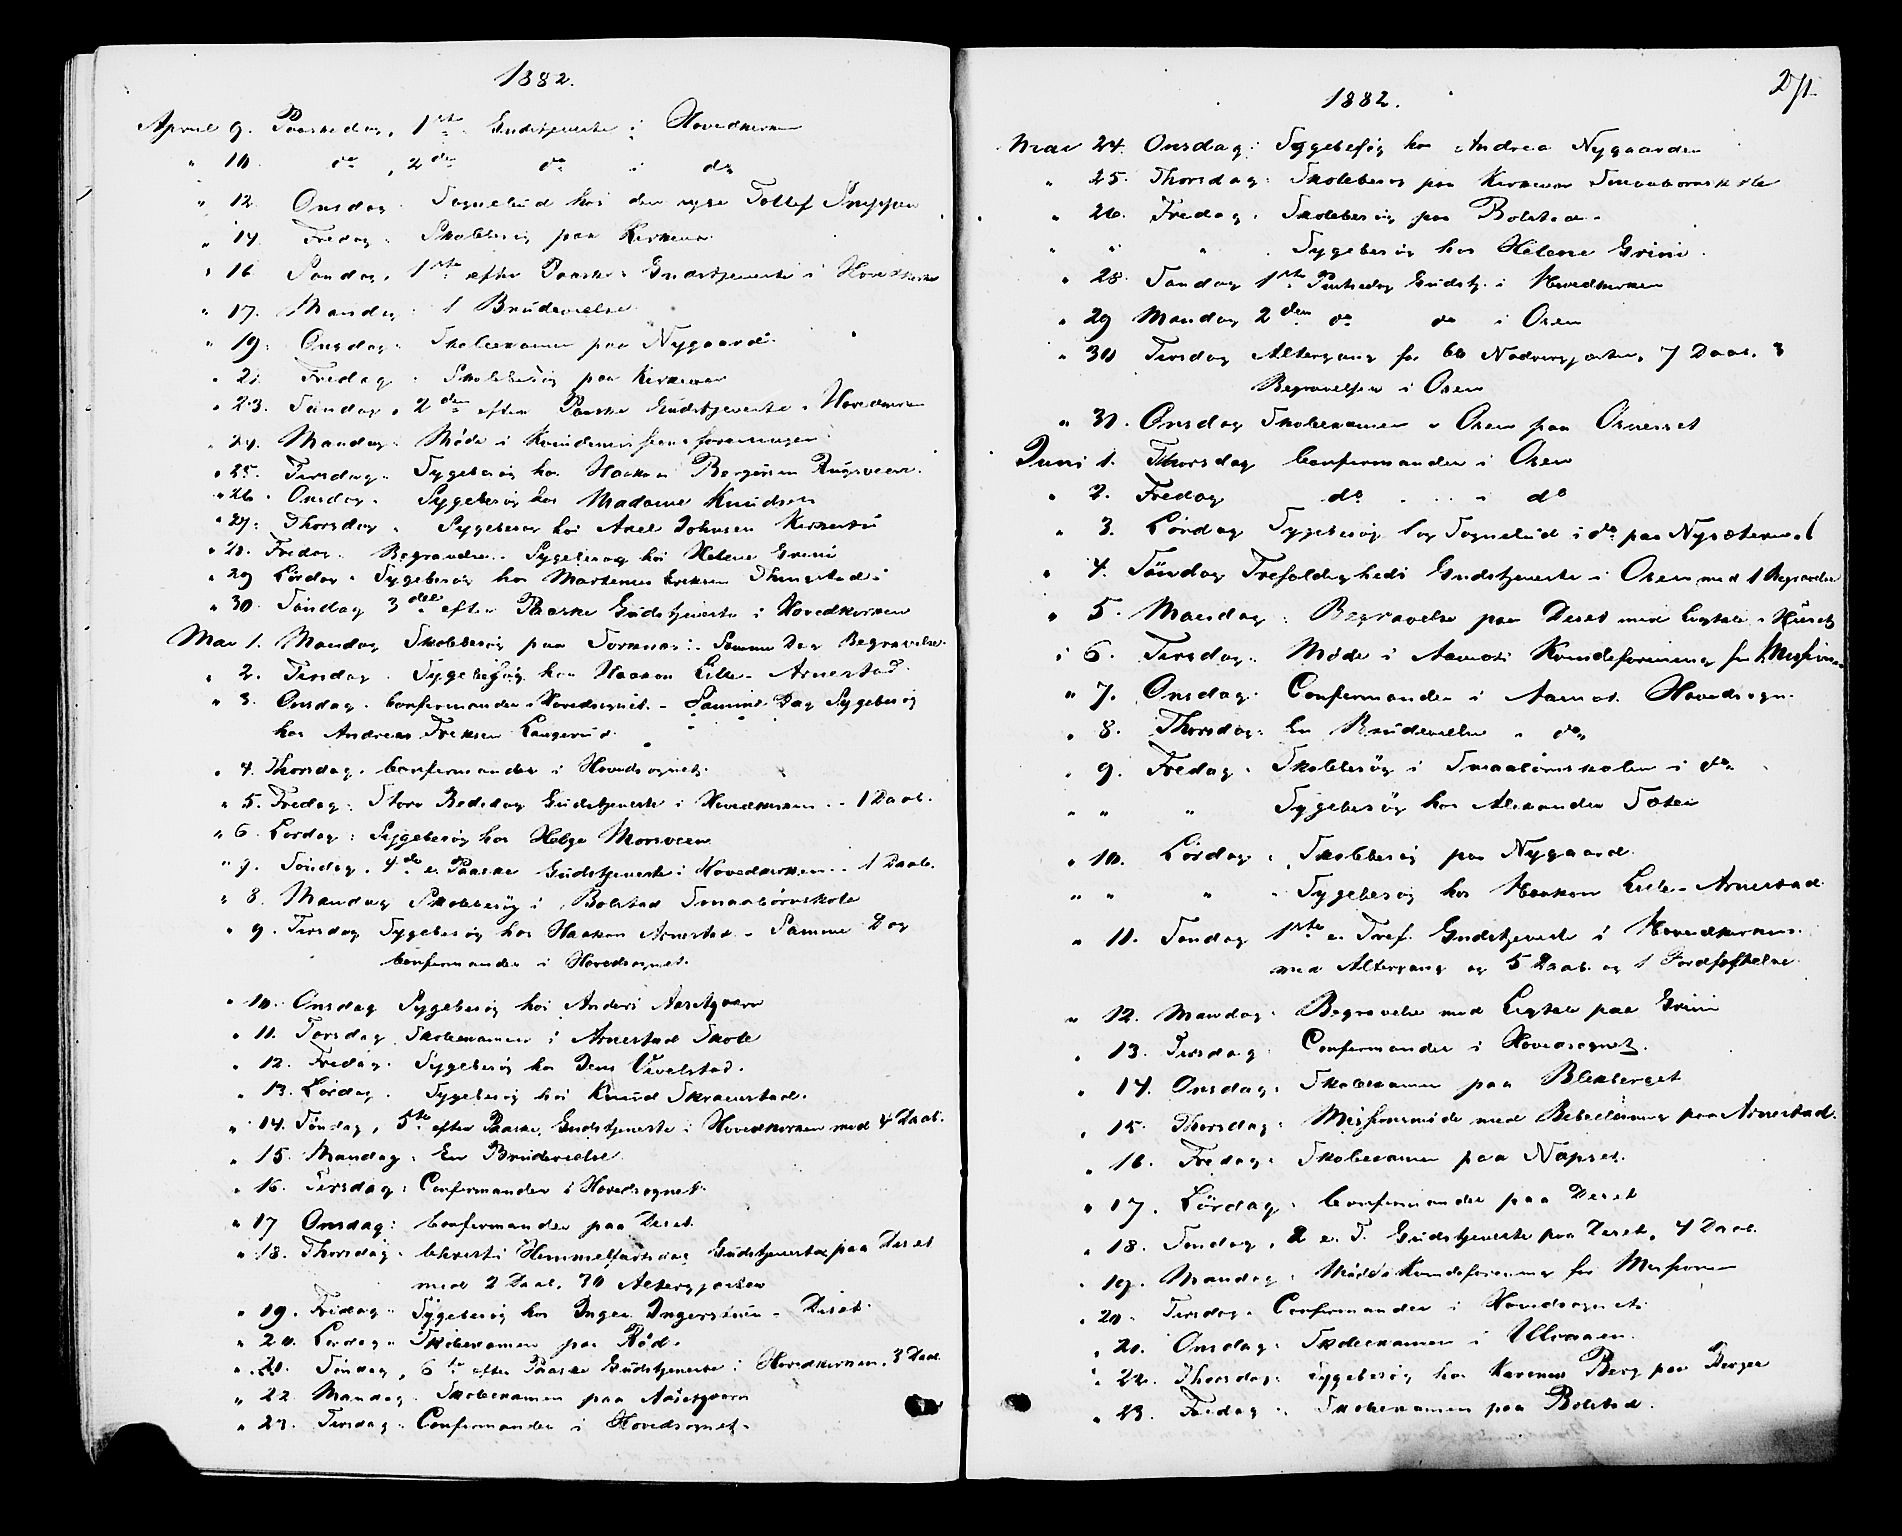 1882.
April 9. Paaskedag, 1ste Gudstjeneste i Hovedkirken
" 10. do , 2den do i do
" 12. Onsdag. Sognebud hos den syge Tollef
" 14. Fredag. Skolebesøg paa Kirkemo
" 16 Søndag, 1ste efter Paaske. Gudstjeneste i Hovedkirken
" 17. Mandag. 1 Brudevielse.
" 19. Onsdag. Skoleexamen paa Nygaard.
" 21. Fredag. Skolebesøg paa Kirkemo
" 23. Søndag, 2den efter Paaske Gudstjeneste i Hovedkirken
" 24. Mandag. Møde i
" 25. Tirsdag. Sygebesøg hos Haakon Bergersen
" 26. Onsdag. Sygebesøg hos Madame Knudsen
" 27. Thorsdag. Sygebesøg hos Axel Johnsen
" 28. Fredag. Begravelse. Sygebesøg hos Helene Grini
" 29 Lørdag. Sygebesøg hos Martenus Eriksen
" 30. Søndag 3die efter Paaske Gudstjeneste i Hovedkirken
Mai 1. Mandag Skolebesøg paa Samme Dag Begravelse.
" 2. Tirsdag. Sygebesøg hos Haakon Lille-Arnestad.
" 3. Onsdag. Confirmander i Hovedsognet. - Samme Dag Sygebesøg
hos Andreas Langerud.
" 4. Thorsdag. Confirmander i Hovedsognet.
" 5. Fredag. Store Bededag Gudstjeneste i Hovedkirken. - 1 Daab.
" 6. Lørdag: Sygebesøg hos Helge Morsveen
" 7. Søndag, 4de e. Paaske Gudstjeneste i Hovedkirken. - 1 Daab.
" 8. Mandag Skolebesøg i Bolstad Smaabørnskole
" 9. Tirsdag Sygebesøg hos Haakon Arnestad - Samme Dag
Confirmander i Hovedsognet.
" 10. Onsdag Sygebesøg hos Anders
" 11. Torsdag Skoleexamen i Arnestad Skole
" 12. Fredag. Sygebesøg hos Jens
" 13. Lørdag. Sygebesøg hos Knud
" 14. Søndag, 5te efter Paaske, Gudstjeneste i Hovedkirken med 4 Daab.
" 15. Mandag: En Brudevielse.
" 16. Tirsdag: Confirmander i Hovedsognet.
" 17 Onsdag: Confirmander paa Deset.
" 18. Thorsdag. Christi Himmelfartsdag Gudstjeneste paa Deset
med 2 Daab, 70 Altergjester
" 19. Fredag. Sygebesøg hos Inger - Deset.
" 20. Lørdag. Skoleexamen paa Rød.
" 21. Søndag, 6te efter Paaske Gudstjeneste i Hovedkirken, 3 Daab.
" 22. Mandag. Skoleexamen paa
" 23. Tirsdag. Confirmander i Hovedsognet.
271.
1882.
Mai 24. Onsdag: Sygebesøg hos Andrea Nygaarden
" 25. Thorsdag: Skolebesøg paa Kirkemo Smaabørnskole
" 26. Fredag. Skolebesøg paa Bolstad.
" " " Sygebesøg hos Helene Grini.
" 28. Søndag 1ste Pintsedag Gudstj. i Hovedkirken
" 29 Mandag 2den do do i Osen
" 30 Tirsdag Altergang for 60 7 Daab. 3
Begravelser i Osen
" 31. Onsdag Skoleexamen i Osen paa Osneset
Juni 1. Thorsdag Confirmander i Osen
" 2. Fredag do i do
" 3. Lørdag Sygebesøg og Sognebud i do paa
" 4. Søndag Trefoldigheds Gudstjeneste i Osen med 1 Begravelse
" 5. Mandag: Begravelse paa Deset med Ligtale i Huset
" 6. Tirsdag. Møde i Aamots Kvindeforening for Missionen
" 7. Onsdag. Confirmander i Aamot Hovedsogn.
" 8. Thorsdag: En Brudevielse i do
" 9. Fredag. Skolebesøg i Smaabørnskolen i do
" " " Sygebesøg hos Alexander
" 10. Lørdag. Skolebesøg paa Nygaard.
" " " Sygebesøg hos Haakon Lille-Arnestad
" 11. Søndag 1ste e. Tref. Gudstjeneste i Hovedkirken.
med Altergang og 5 Daab. og 1 Jordfæstelse.
" 12. Mandag. Begravelse med Ligtale paa Grini
" 13. Tirsdag. Confirmander i Hovedsognet.
" 14. Onsdag. Skoleexamen paa Blekberget
" 15. Thorsdag. Missionsmøde med Bibellæsning paa Arnestad.
" 16. Fredag. Skoleexamen paa
" 17. Lørdag. Confirmander paa Deset
" 18. Søndag, 2 e. T. Gudstjeneste paa Deset, 4 Daab.
" 19. Mandag. Møde i Kvindeforening for Missionen
" 20. Tirsdag. Confirmander i Hovedsognet.
" 21. Onsdag. Skoleexamen i
" 22. Thorsdag. Sygebesøg hos Karenus Berg paa
" 23. Fredag. Skoleexamen paa Bolstad.